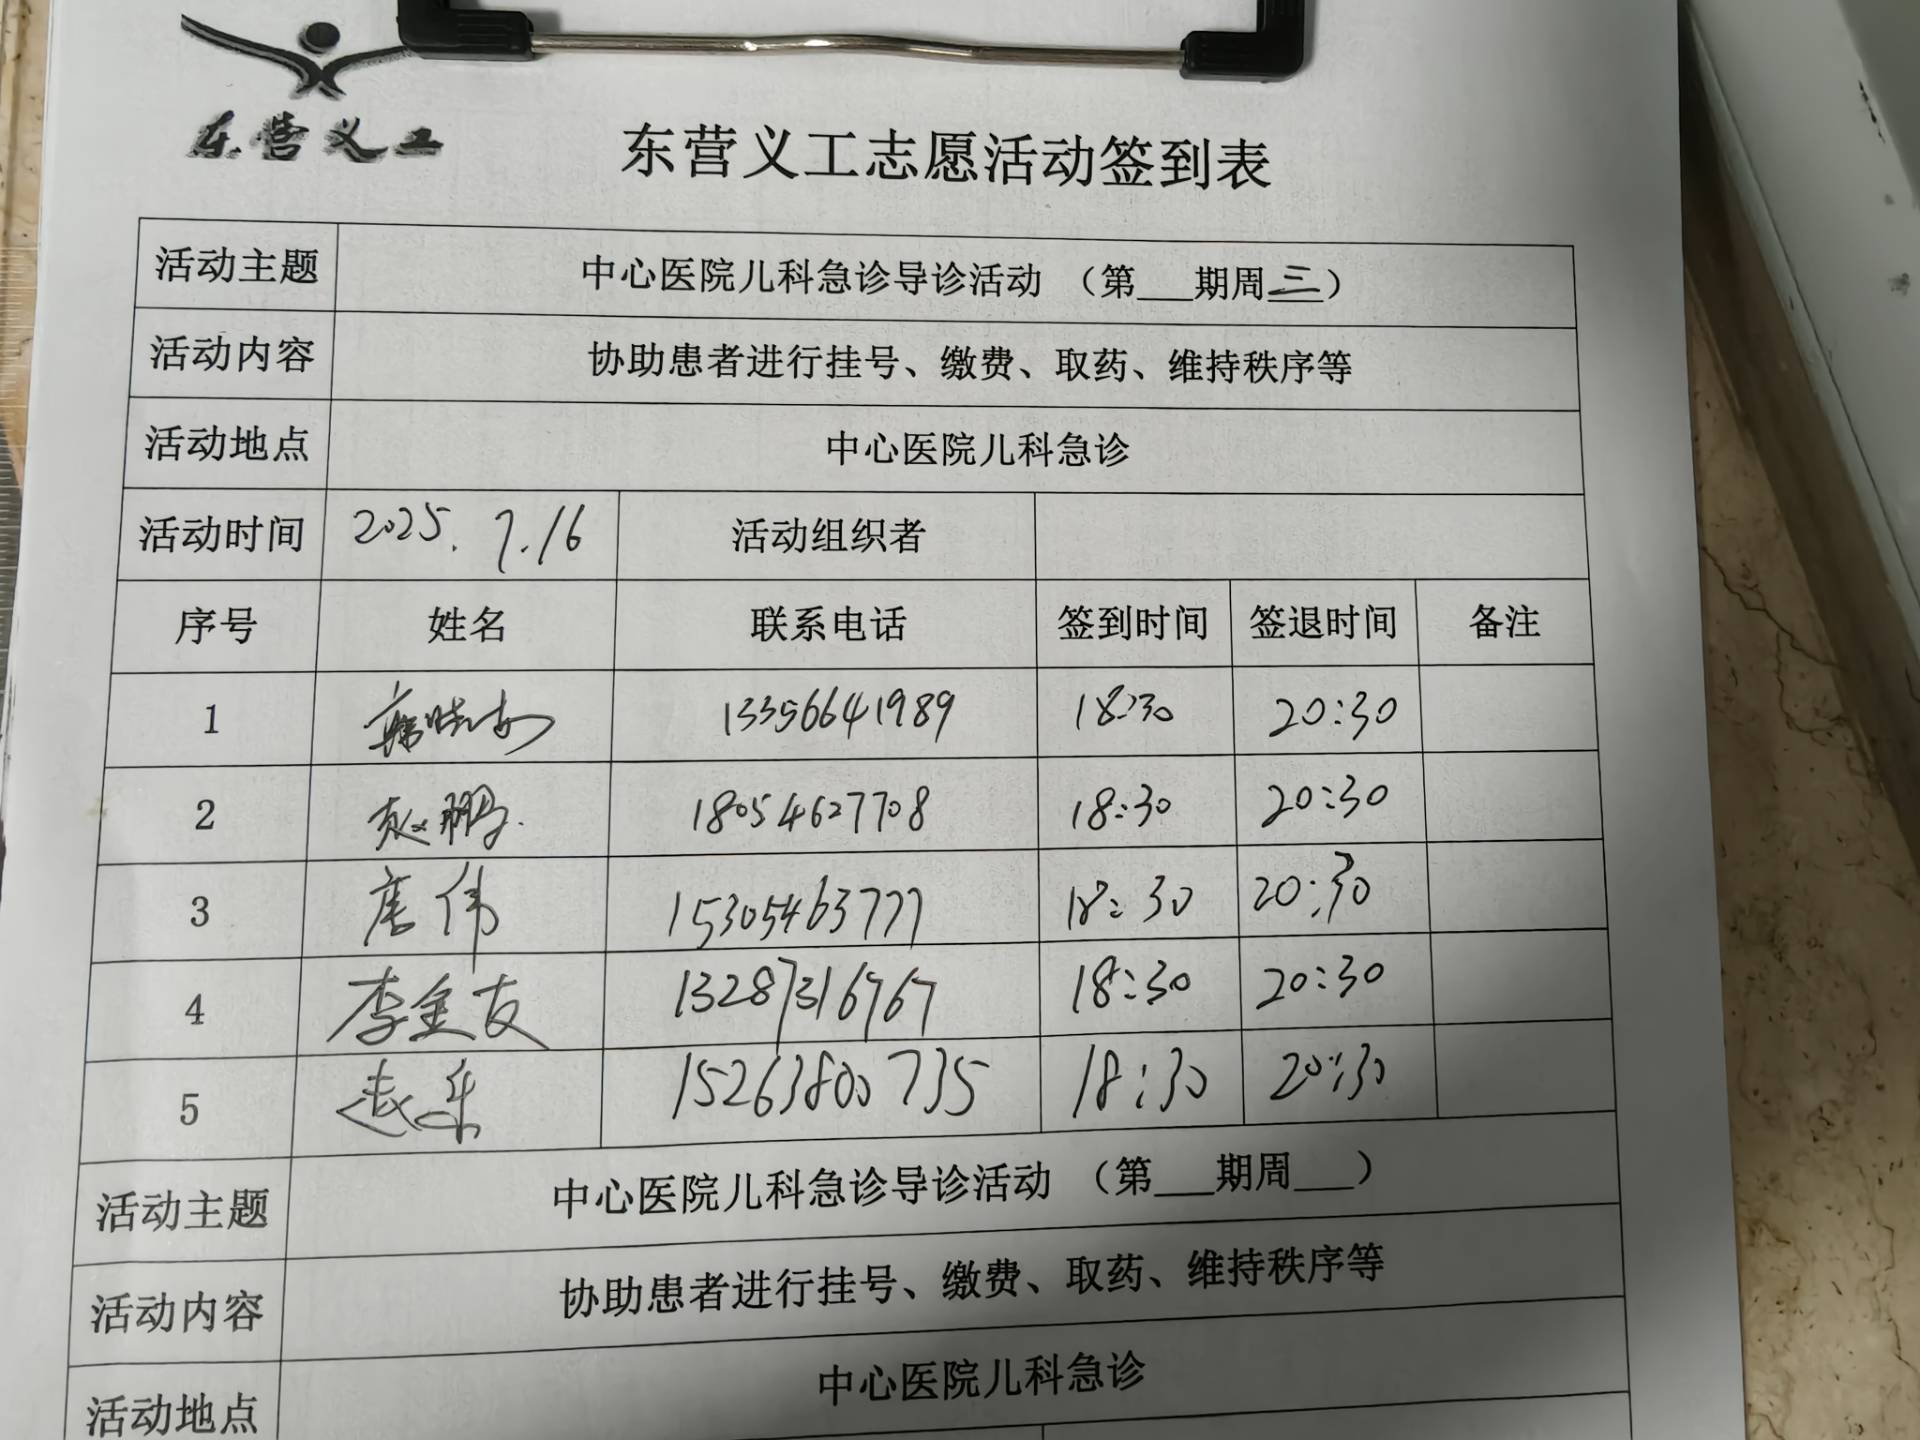 东营义工
东营义工志愿活动签到表
活动主题 中心医院儿科急诊导诊活动 （第___期周三）
活动内容 协助患者进行挂号、缴费、取药、维持秩序等
活动地点 中心医院儿科急诊
活动时间 2025.7.16 活动组织者
序号 姓名 联系电话 签到时间 签退时间 备注
1 13356641989 18:30 20:30
2 赵鹏 18054627708 18:30 20:30
3 唐伟 15305463777 18:30 20:30
4 李金友 13287316767 18:30 20:30
5 赵乐 15263800735 18:30 20:30
活动主题 中心医院儿科急诊导诊活动 （第___期周___）
活动内容 协助患者进行挂号、缴费、取药、维持秩序等
活动地点 中心医院儿科急诊